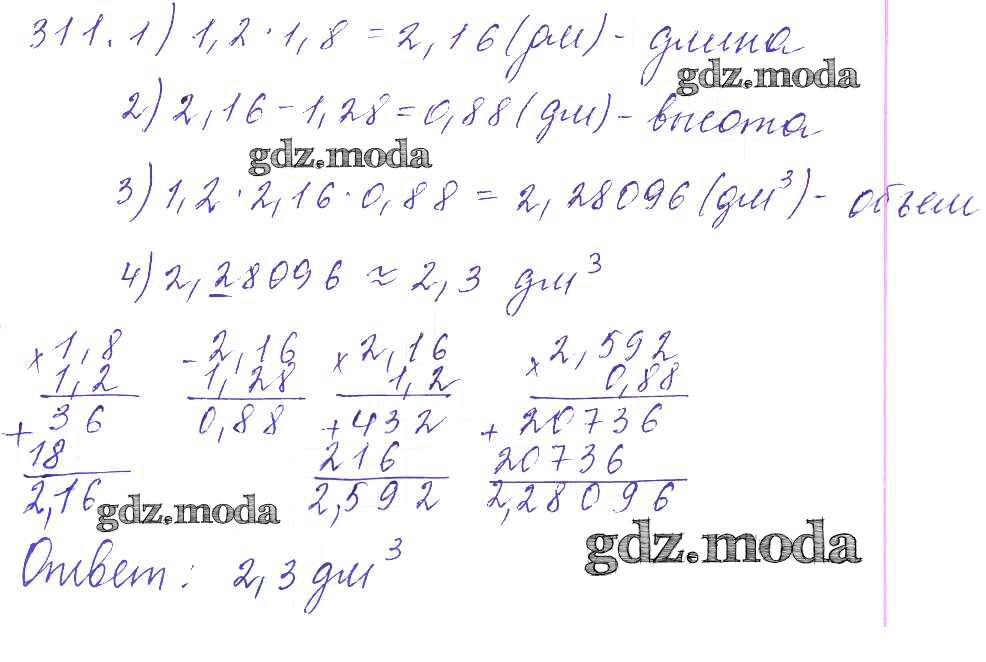 311. 1) 1,2 · 1,8 = 2,16 (дм) - длина
gdz.moda
2) 2,16 - 1,28 = 0,88 (дм) - высота
gdz.moda
3) 1,2 · 2,16 · 0,88 = 2,28096 (дм³) - объем
4) 2,28096 ≈ 2,3 дм³
× 1,8 - 2,16 × 2,16 × 2,592
1,2 1,28 1,2 0,88
+ 36 0,88 + 432 + 20736
18 216 20736
2,16 2,592 2,28096
gdz.moda
gdz.moda
Ответ: 2,3 дм³